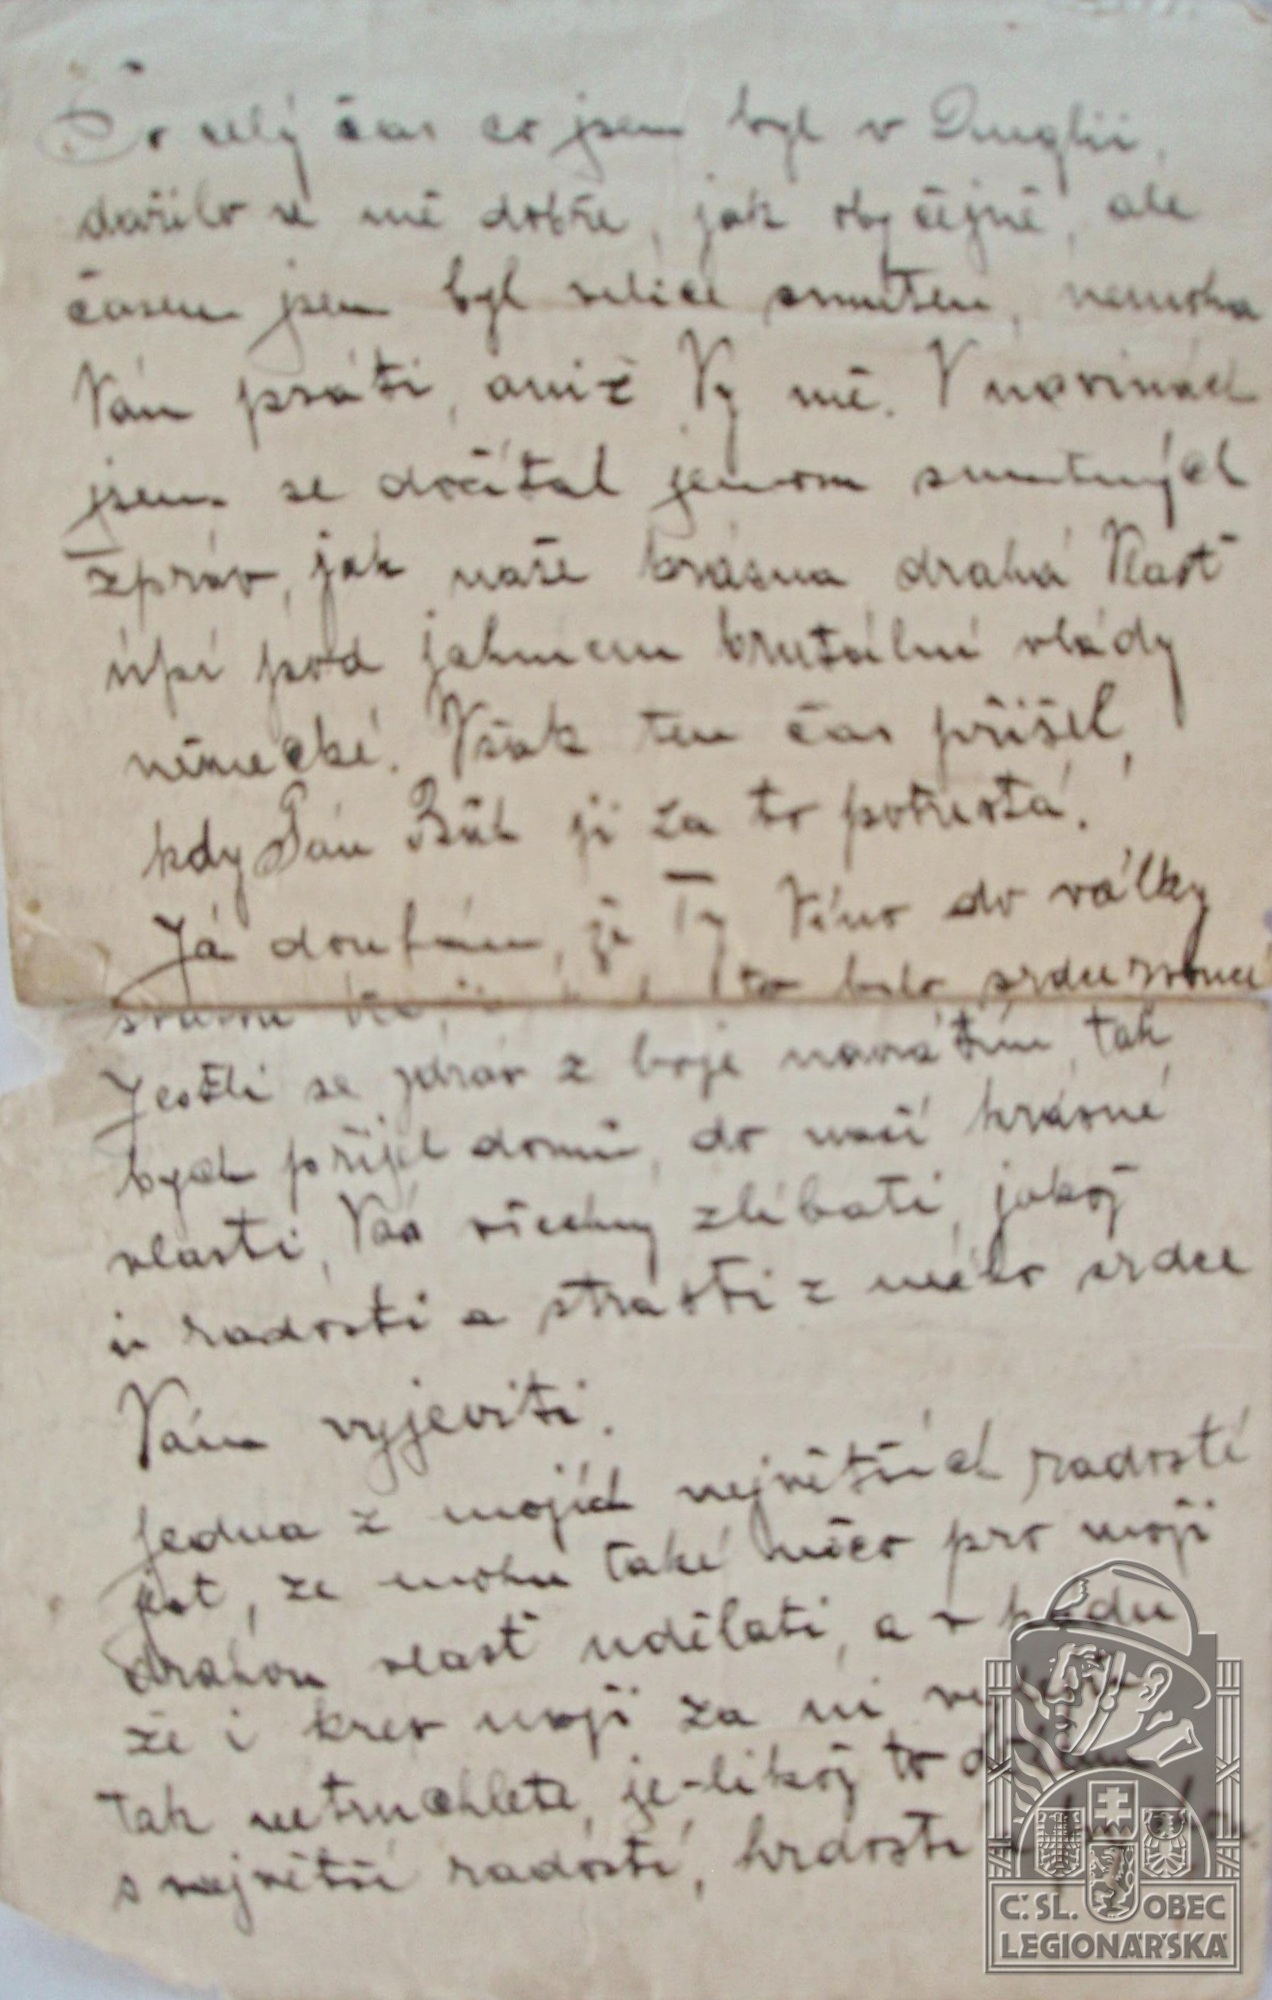 Po celý čas co jsem byl v Anglii,
dařilo se mě dobře, jak obyčejně, ale
časem jsem byl velice smuten, nemoha
Vám psáti, aniž Vy mě. V novinách
jsem se dočítal jenom smutných
zpráv, jak naše krásna drahá Vlasť
úpí pod jahmem brutální vlády
německé. Však ten čas přišel,
kdy Pán Bůh ji za to potrestá.
Já doufám, že Ty Véno do války
to bylo srdce
Jestli se zdráv z boje navrátím, tak
bych přijel domů, do naší krásné
vlasti, Vás všechny zlíbati, jakož
i radosti a strasti z mého srdce
Vám vyjeviti.
Jedna z mojích největších radostí
jest, že mohu také něco pro moji
drahou vlasť udělati, a v
že i krev moji za ni
tak netruchlete, je-likož to
s největší radostí, hrdostí
Č. SL. OBEC
LEGIONÁŘSKÁ